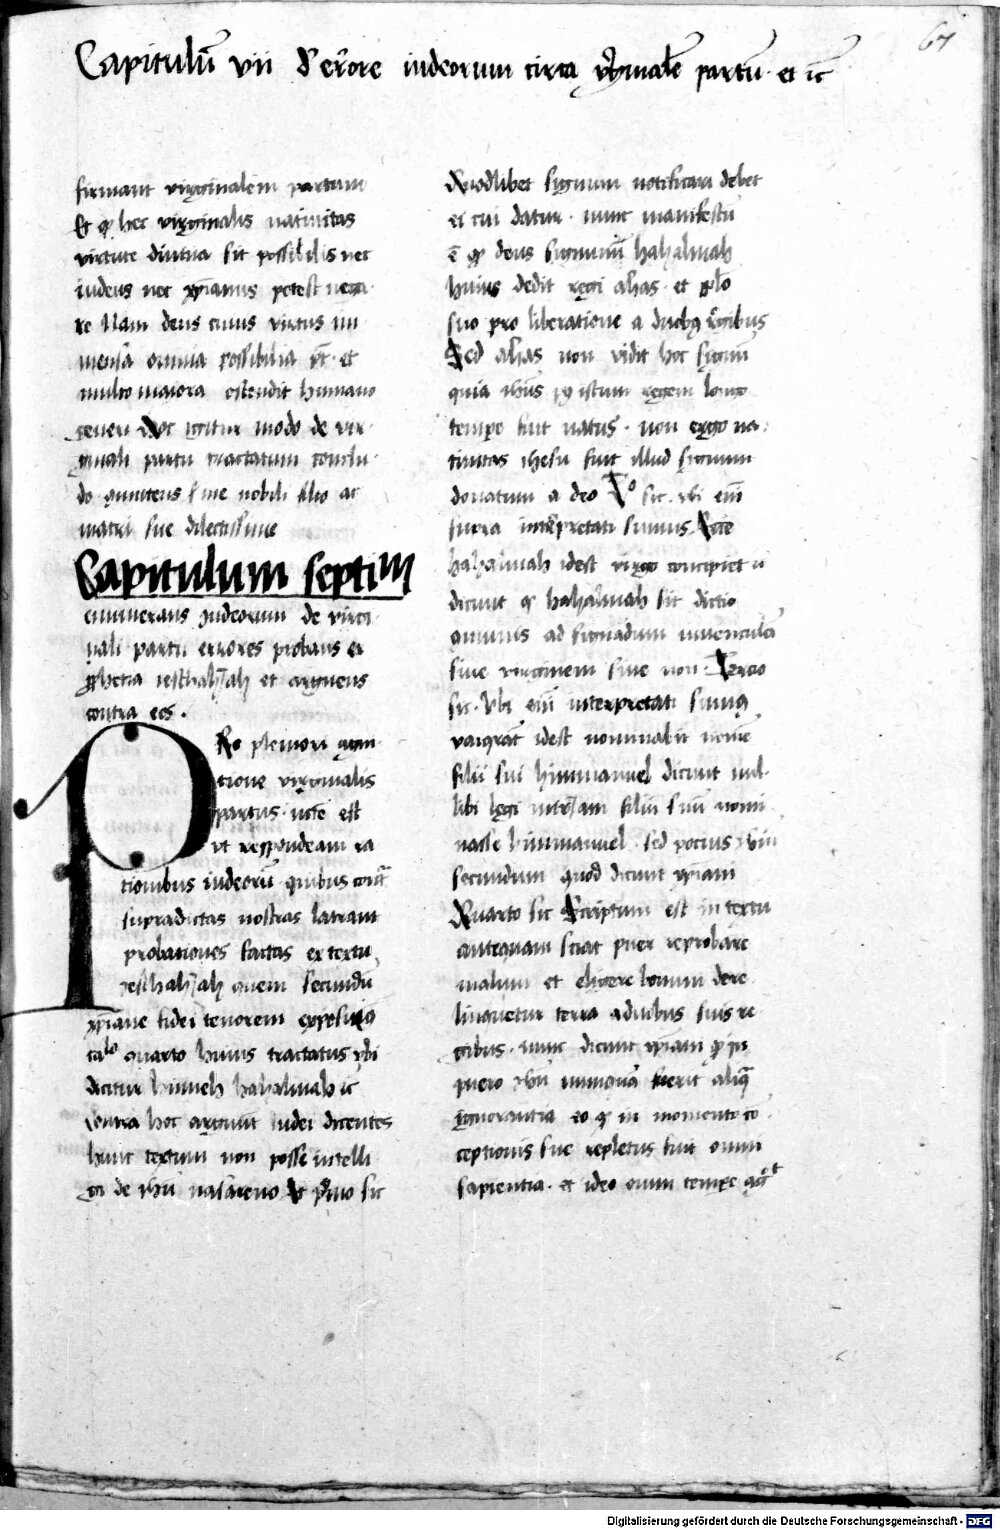 67
Capitulū vii d' errore iudeorum circa v'ginalē partū · et ic̄
firmant virginalem partum
Et ꝙ hec virginalis natiuitas
virtute diuina sit possibilis nec
iudeus nec xp̄ianus potest nega
re Nam deus cuius virtus im
mensa omnia possibilia pt̄ · et
multo maiora ostendit humano
generi Hoc igitur modo de vir
ginali partu tractatum conclu
do gnitens sine nobili filio ac
matri sue dilectissime
Capitulum septim
enumerans Iudeorum de virgi
nali partu errores probans ex
ꝓphetia ieschahiah et arguens
contra eos ·
PRo pleniori cogni
tione virginalis
partus · iustū est
vt respondeam ra
tionibus iudeorū quibus cont̄
supradictas nostras latrant
probationes factas ex textu
ieschahiah quem secundū
xp̄iane fidei tenorem exposui
calo quarto huius tractatus vbi
dicitur hinneh hahalmah ic̄
Contra hoc arguūt iudei dicentes
hunc textum non posse intelli
gi de ihū nasareno Et p'mo sic
Quodlibet signum notificari debet
ei cui datur · nunc manifestū
ē ꝙ deus signum hahalmah
huius dedit regi ahas · et pplo
suo pro liberatione a duobꝰ regibus
Sed ahas non vidit hoc signū
quia ihūs pꝰ istum regem longo
tempore fuit natus · non ergo na
tiuitas ihesu fuit illud signum
donatum a deo 2o sic · vbi enī
supra interpretati sumus Ecce
hahalmah idest virgo concipiet ii
dicunt ꝙ hahalmah sit dictio
communis ad signādum iuuenculā
siue virginem siue non · Tercio
sic · Vbi enī interpretati sumꝰ
vaiqrat idest nominabit nomē
filii sui himmanuel dicunt nul
libi legi miriam filiū suū nomi
nasse himmanuel · sed pocius ihūm
secundum quod dicunt xp̄iani
Quarto sic Scriptum est in textu
antequam sciat puer reprobare
malum et eligere bonum dere
linquetur terra a duobus suis re
gibus · nunc dicunt xp̄iani ꝙ in
puero ihū nunquā fuerit aliq̄
ignorantia eo ꝙ in momento cō
ceptionis sue repletus fuit omni
sapientia · et ideo omni tempore
Digitalisierung gefördert durch die Deutsche Forschungsgemeinschaft - DFG